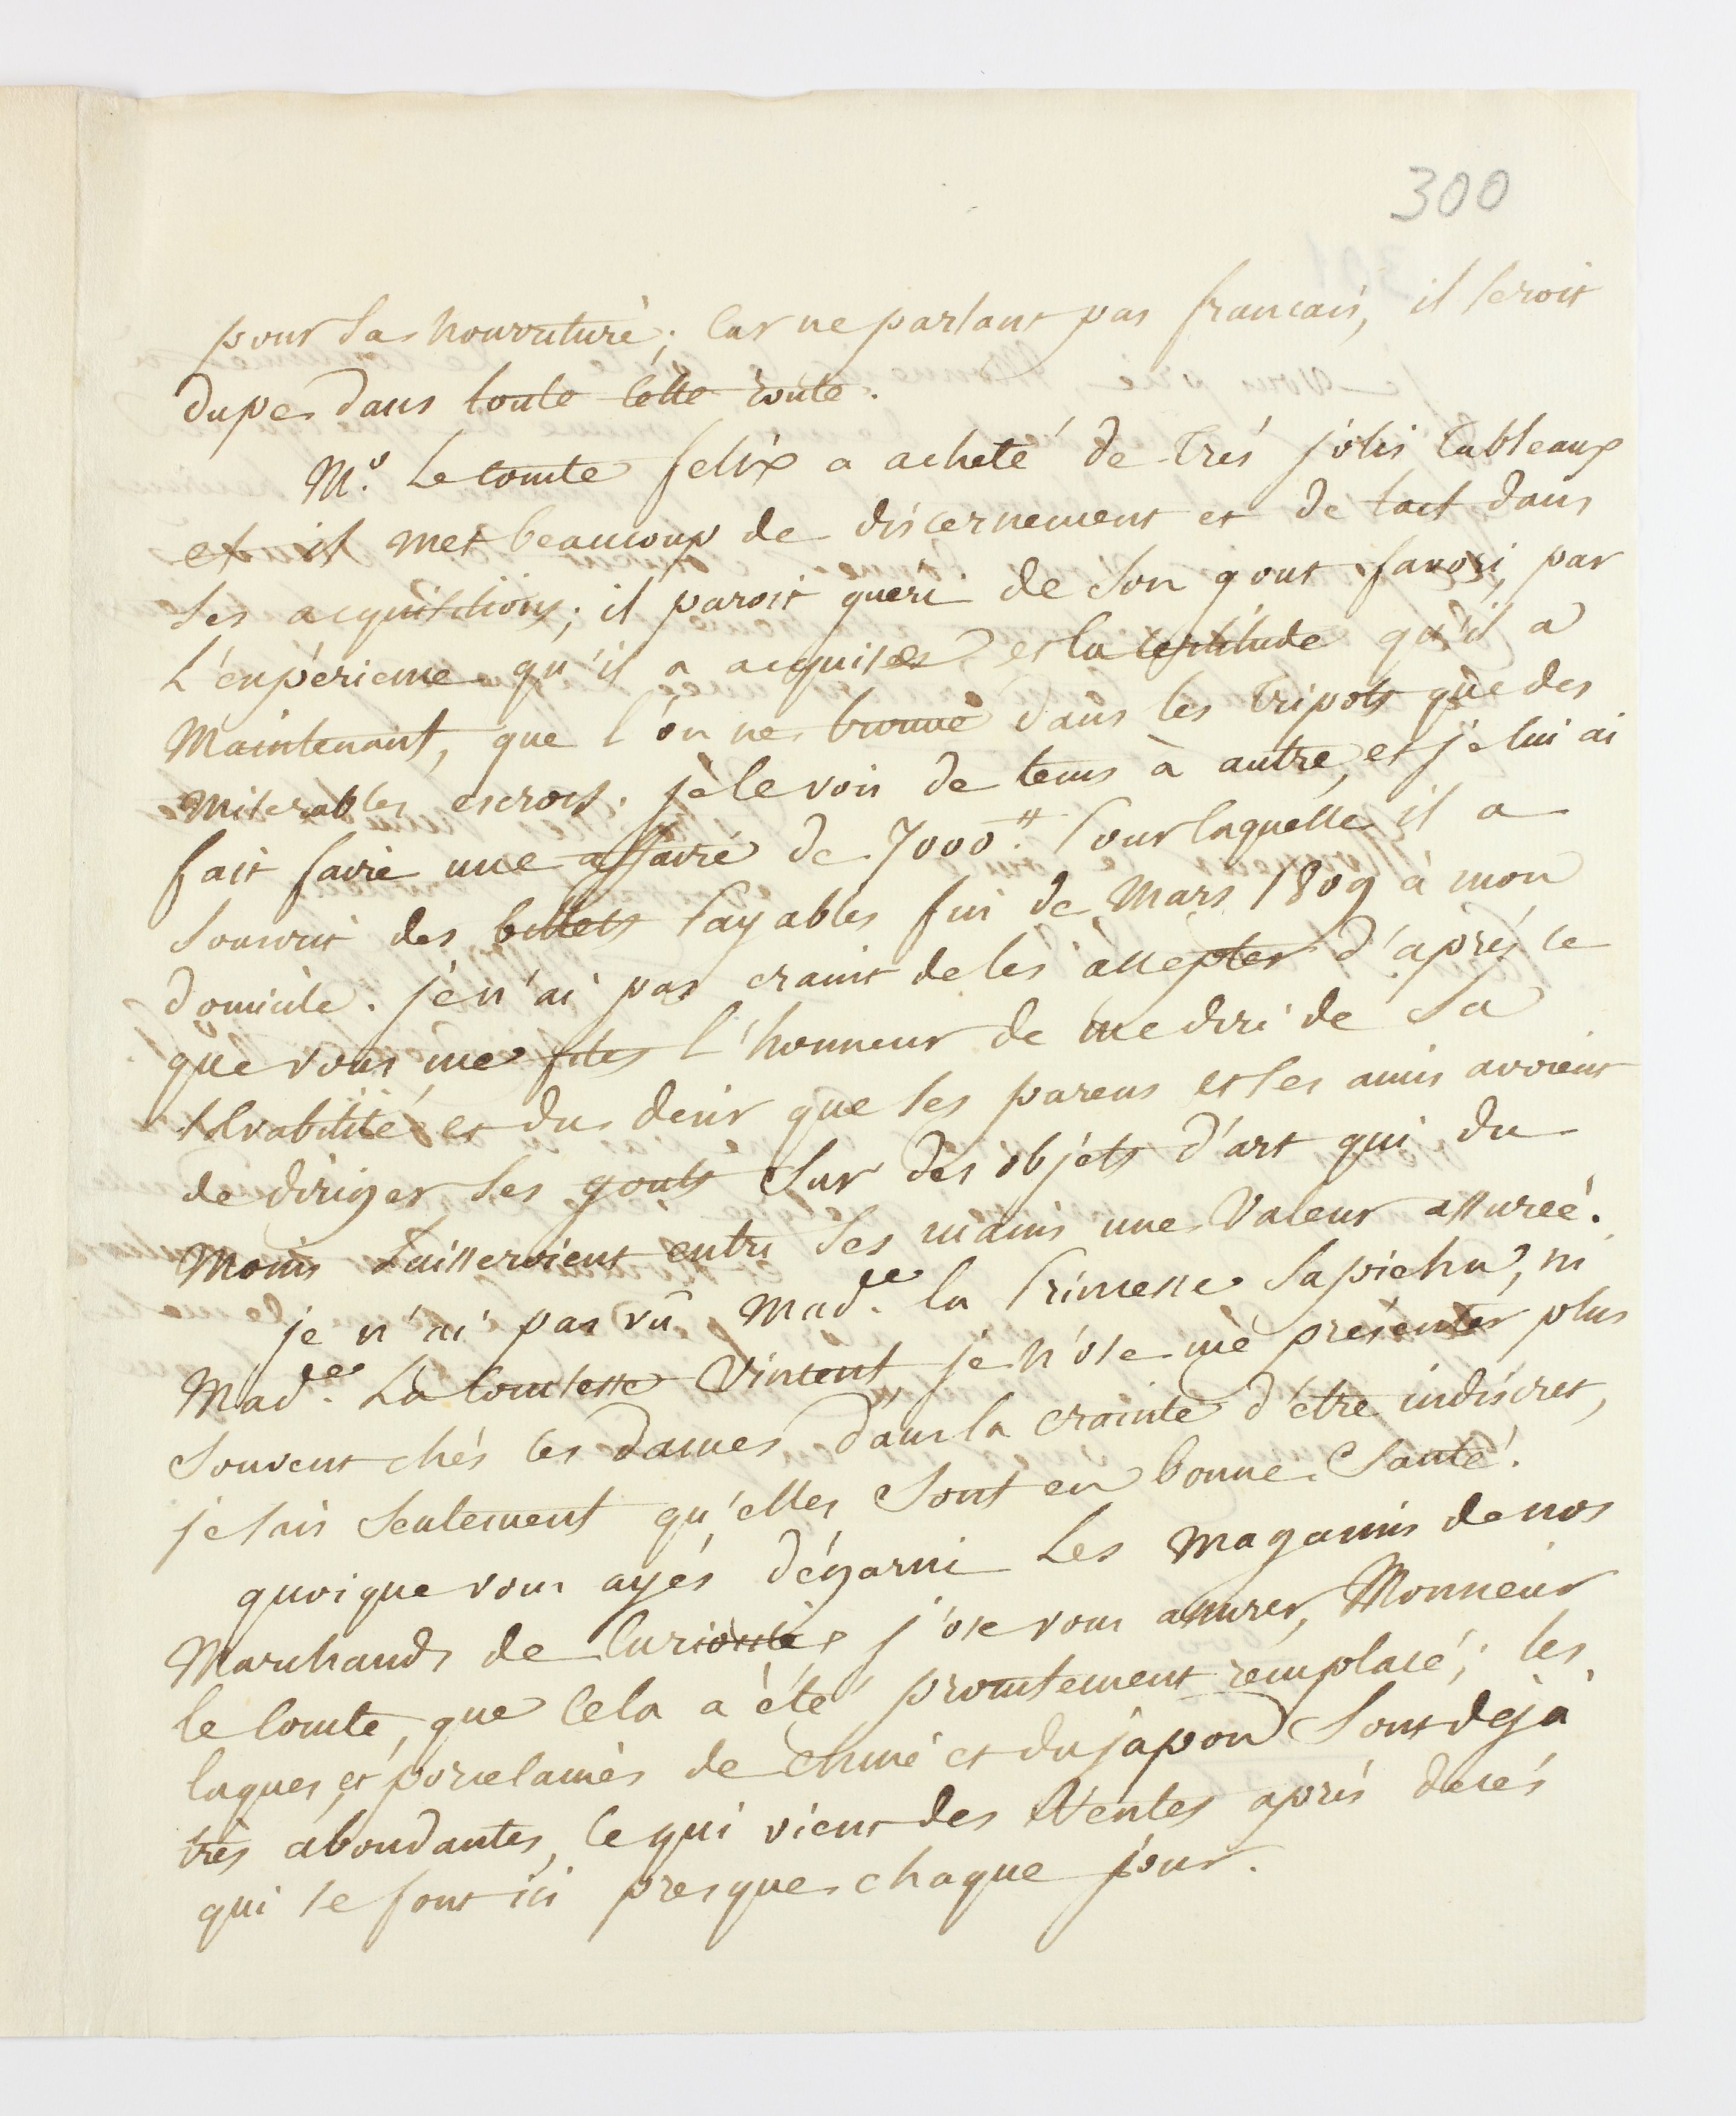 300
pour sa nourriture; car ne parlant pas francais, il seroit
dupe dans toute cette route.
Mr. Le comte felix a acheté de très jolis tableaux
et il met beaucoup de discernement et de tact dans
ses acquisitions; il paroit guéri de son gout favori, par
L'expérience qu'il a acquises et la certitude qu'il a
Maintenant, que l'on ne trouve dans les tripots que des
miserables escrocs. je le vois de tems à autre, et je lui ai
fait faire une affaire de 7000.ᵗᵗ Pour laquelle il a
souscrit des billets Payables fin de Mars 1809 à mon
domicile. je n'ai pas craint de les accepter d'après ce
que vous me fites l'honneur de me dire de sa
solvabilité et du desir que ses parens et ses amis avoient
de diriger ses gouts sur des objets d'art qui du
Moins Laisseroient entre ses mains une Valeur assurée.
je n'ai pas vû Mad.e la Princesse Sapieha, ni
Mad.e La Comtesse Vincent, je n'ose me présenter plus
Souvent chés ces dames dans la crainte d'être indiscret,
je sais seulement qu'elles sont en bonne Santé.
quoique vous ayés dégarni Les magasins de nos
Marchands de Curiosités j'ose vous assurer, Monsieur
le Comte, que cela a été promtement remplacé; les
laques et porcelaines de chine et du japon Sont déjà
très abondantes, ce qui vient des Ventes après decés
qui se font ici presque chaque jour.